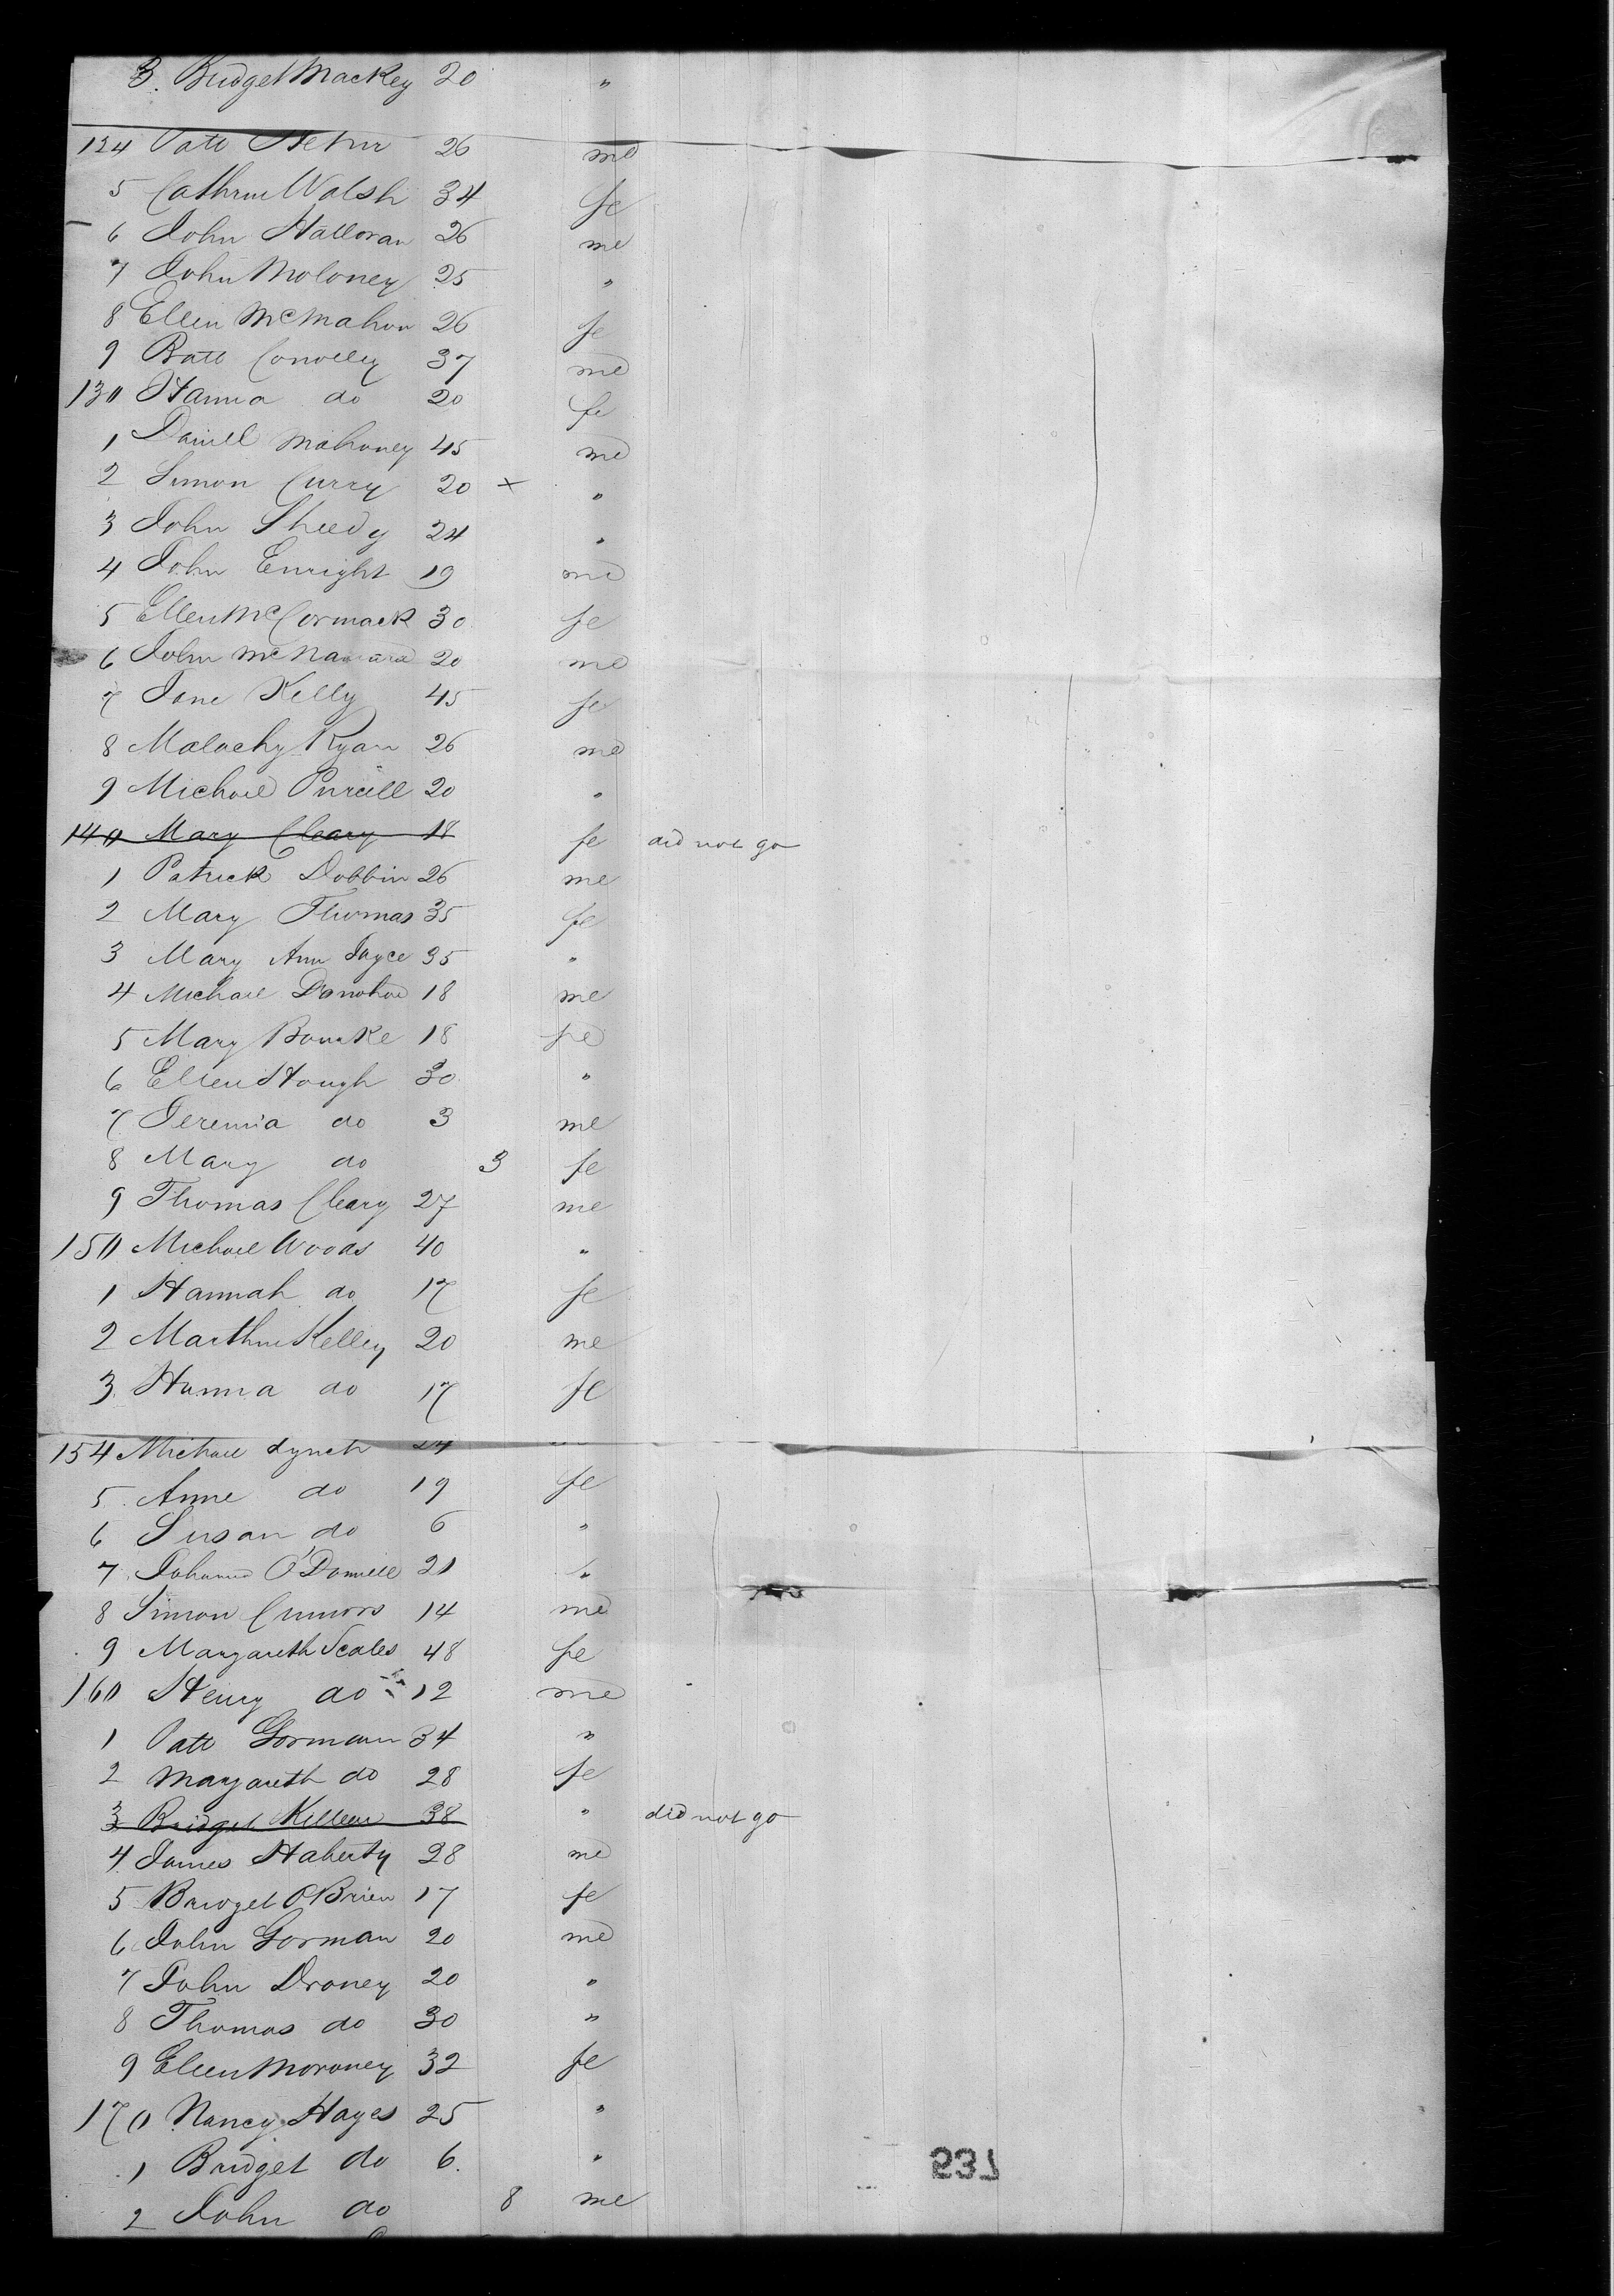 3. Bridget Mackey 20 "
124 Patt Hehir 26 me
5 Cathrine Walsh 34 fe
6 John Halloran 26 me
7 John Moloney 25 "
8 Ellen McMahon 26 fe
9 Batt Conolly 37 me
130 Hanna do 20 fe
1 Daniell Mahoney 45 me
2 Simon Curry 20 x "
3 John Sheedy 24 "
4 John Enright 19 me
5 Ellen McCormack 30 fe
6 John McNamara 20 me
7 Jane Kelly 45 fe
8 Malachy Ryan 26 me
9 Michael Purcell 20 "
140 Mary Cleary 18 fe did not go
1 Patrick Dobbin 26 me
2 Mary Thomas 35 fe
3 Mary Ann Joyce 35 "
4 Michael Donohoe 18 me
5 Mary Bourke 18 fe
6 Ellen Hough 30 "
7 Jeremia do 3 me
8 Mary do 3 fe
9 Thomas Cleary 27 me
150 Michael Woods 40 "
1 Hannah do 17 fe
2 Marthin Kelley 20 me
3. Hanna do 17 fe
154 Michael Lynch 24
5. Anne do 19 fe
6 Susan do 6 "
7. Johanna O'Donnell 21 "
8 Simon Connors 14 me
9 Margareth Scales 48 fe
160 Henry do 12 me
1 Patt Gorman 34 "
2 Margareth do 28 fe
3 Bridget Killeen 38 " did not go
4. James Flaherty 28 me
5 Bridget O'Brien 17 fe
6 John Gorman 20 me
7 John Droney 20 "
8 Thomas do 30 "
9 Ellen Moroney 32 fe
170 Nancy Hayes 25 "
1 Bridget do 6. "
2 John do 8 me
237